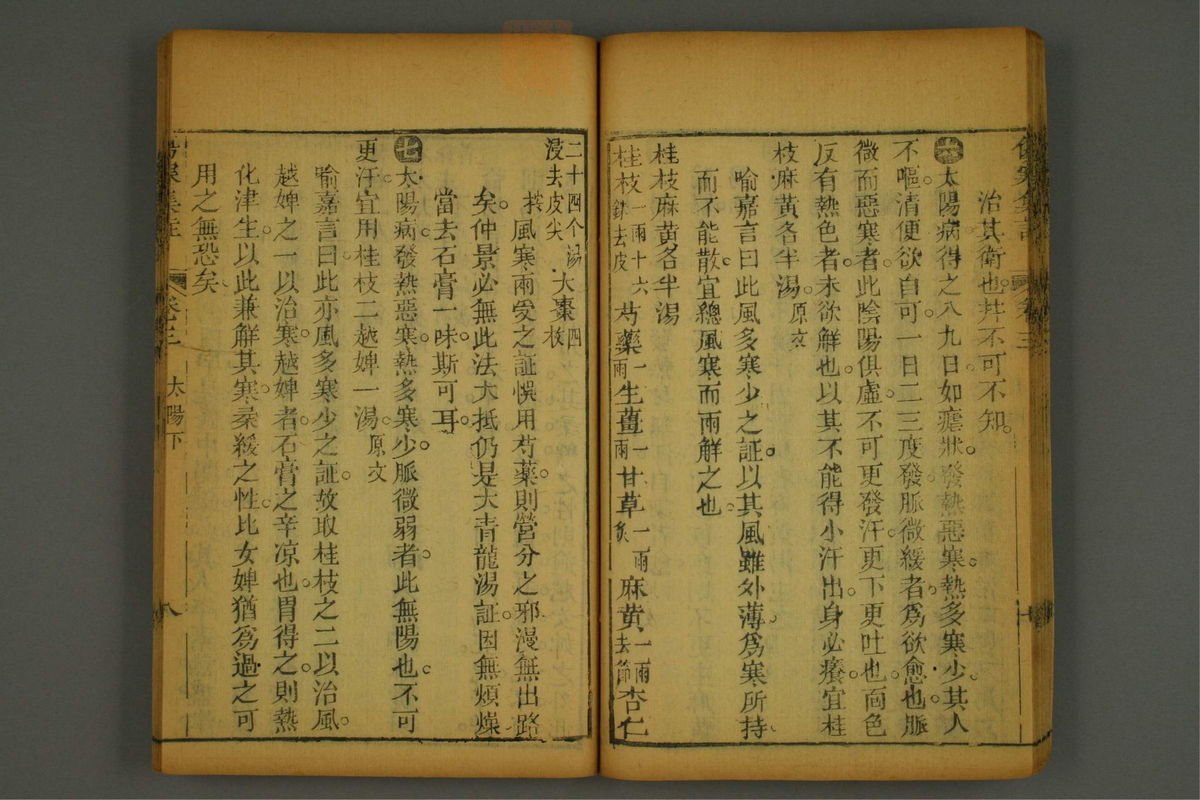 治其衛也幷不可不知
六太陽病得之八九日如瘧狀發熱惡寒熱多寒少其人
不嘔清便欲自可一日二三度發脈微緩者爲欲愈也脈
微而惡寒者此陰陽俱虛不可更發汗更下更吐也面色
反有熱色者未欲解也以其不能得小汗出身必癢宜桂
枝麻黃各半湯原文
喻嘉言曰此風多寒少之証以其風雖外薄爲寒所持
而不能散宜總風寒而兩解之也
桂枝麻黃各半湯
桂枝一兩十六銖去皮 芍藥一兩 生薑一兩 甘草一兩炙 麻黃一兩去節 杏仁
二十四个湯浸去皮尖 大棗四枚
按風寒兩受之証悞用芍藥則營分之邪漫無出路
矣仲景必無此法大抵仍是大青龍湯証因無煩燥
當去石膏一味斯可耳
七太陽病發熱惡寒熱多寒少脈微弱者此無陽也不可
更汗宜用桂枝二越婢一湯原文
喻嘉言曰此亦風多寒少之証故取桂枝之二以治風
越婢之一以治寒越婢者石膏之辛凉也胃得之則熱
化津生以此兼解其寒柔緩之性比女婢猶爲過之可
用之無恐矣
卷三 太陽下 八